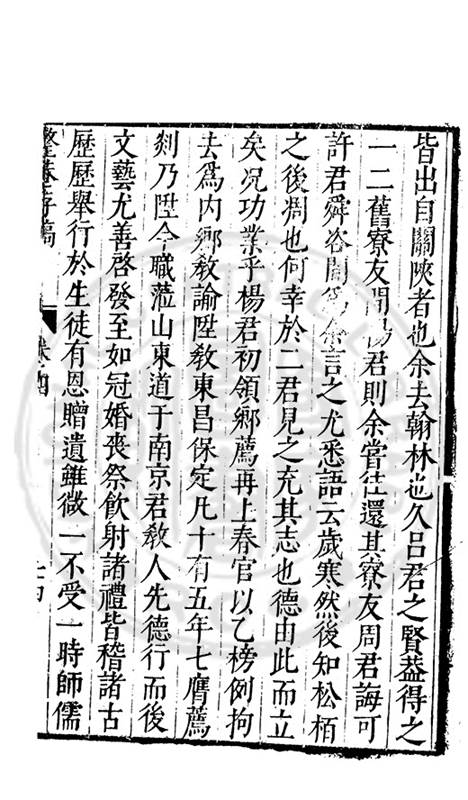 皆出自關陝者也余去翰林也久呂君之賢葢得之
一二舊寮友聞楊君則余嘗徃還其寮友周君誨可
許君舜咨聞爲余言之尤悉語云歲寒然後知松栢
之後凋也何幸於二君見之充其志也德由此而立
矣况功業乎楊君初領鄉薦再上春官以乙榜例拘
去爲内鄉敎諭陞敎東昌保定凡十有五年七膺薦
剡乃陞今職蒞山東道于南京君敎人先德行而後
文藝尤善啓發至如冠婚喪祭飲射諸禮皆稽諸古
歴歴舉行於生徒有恩贈遺雖微一不受一時師儒
整菴存稿 卷四